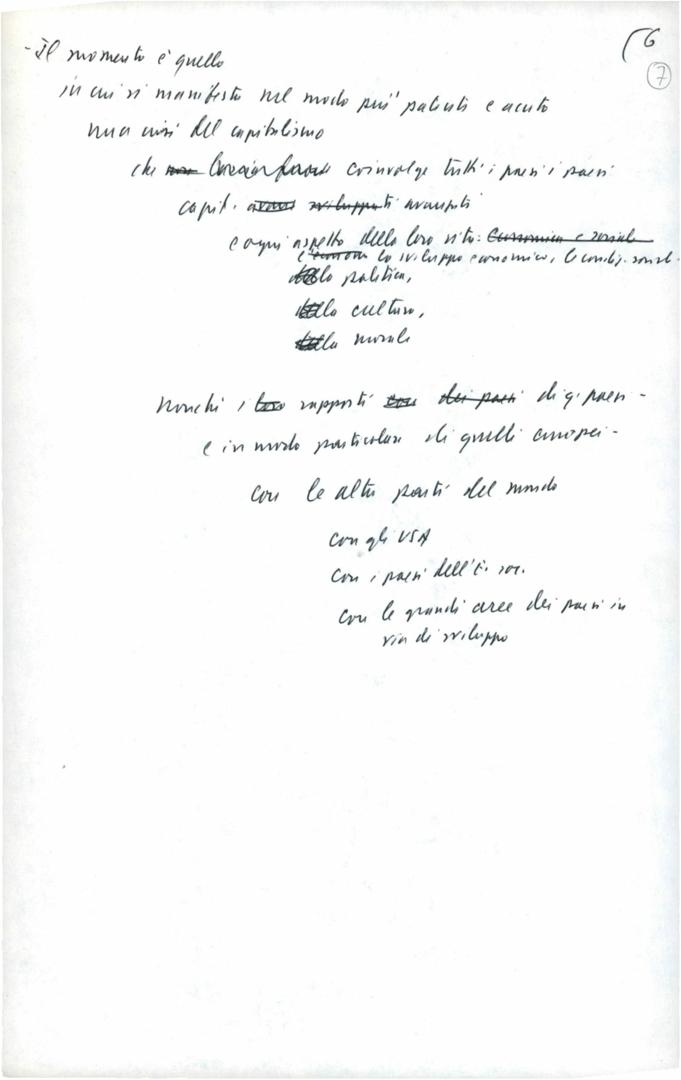 (6
7
- Il momento è quello
in cui si manifesta nel modo più patente e acuto
una crisi del capitalismo
che coinvolge tutti i paesi i paesi
capit. avanzati
e ogni aspetto della loro vita: economica e sociale
lo sviluppo economico, le condiz. social-
la politica,
la cultura,
la morale
nonchè i loro rapporti con dei paesi di q. paesi -
e in modo particolare di quelli europei -
con le altre parti del mondo
con gli USA
con i paesi dell'E. soc.
con le grandi aree dei paesi in
via di sviluppo